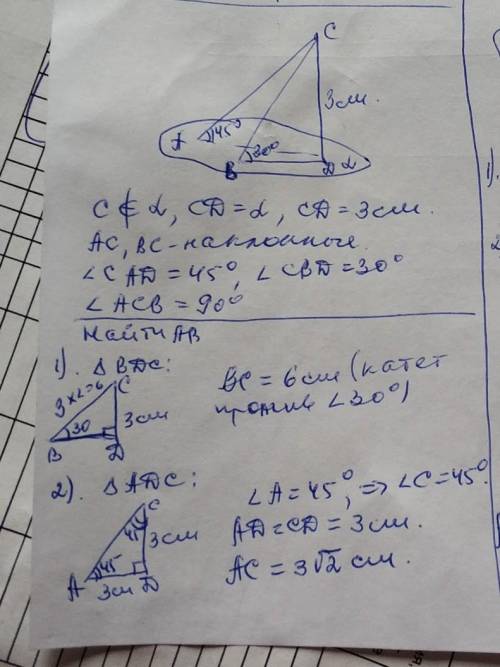 C
3 см.
A 45°
30°
B D α
C ∉ α, CD = α, CD = 3 см.
AC, BC - наклонные.
∠CAD = 45°, ∠CBD = 30°
∠ACB = 90°
Найти AB
1). △ BDC:
3×2=6 C
3 см
30
B D
BC = 6 см (катет
против ∠30°)
2). △ ADC:
C
45 3 см
A 45
3 см D
∠A = 45°, => ∠C = 45°.
AD = CD = 3 см.
AC = 3√2 см.
1).
2